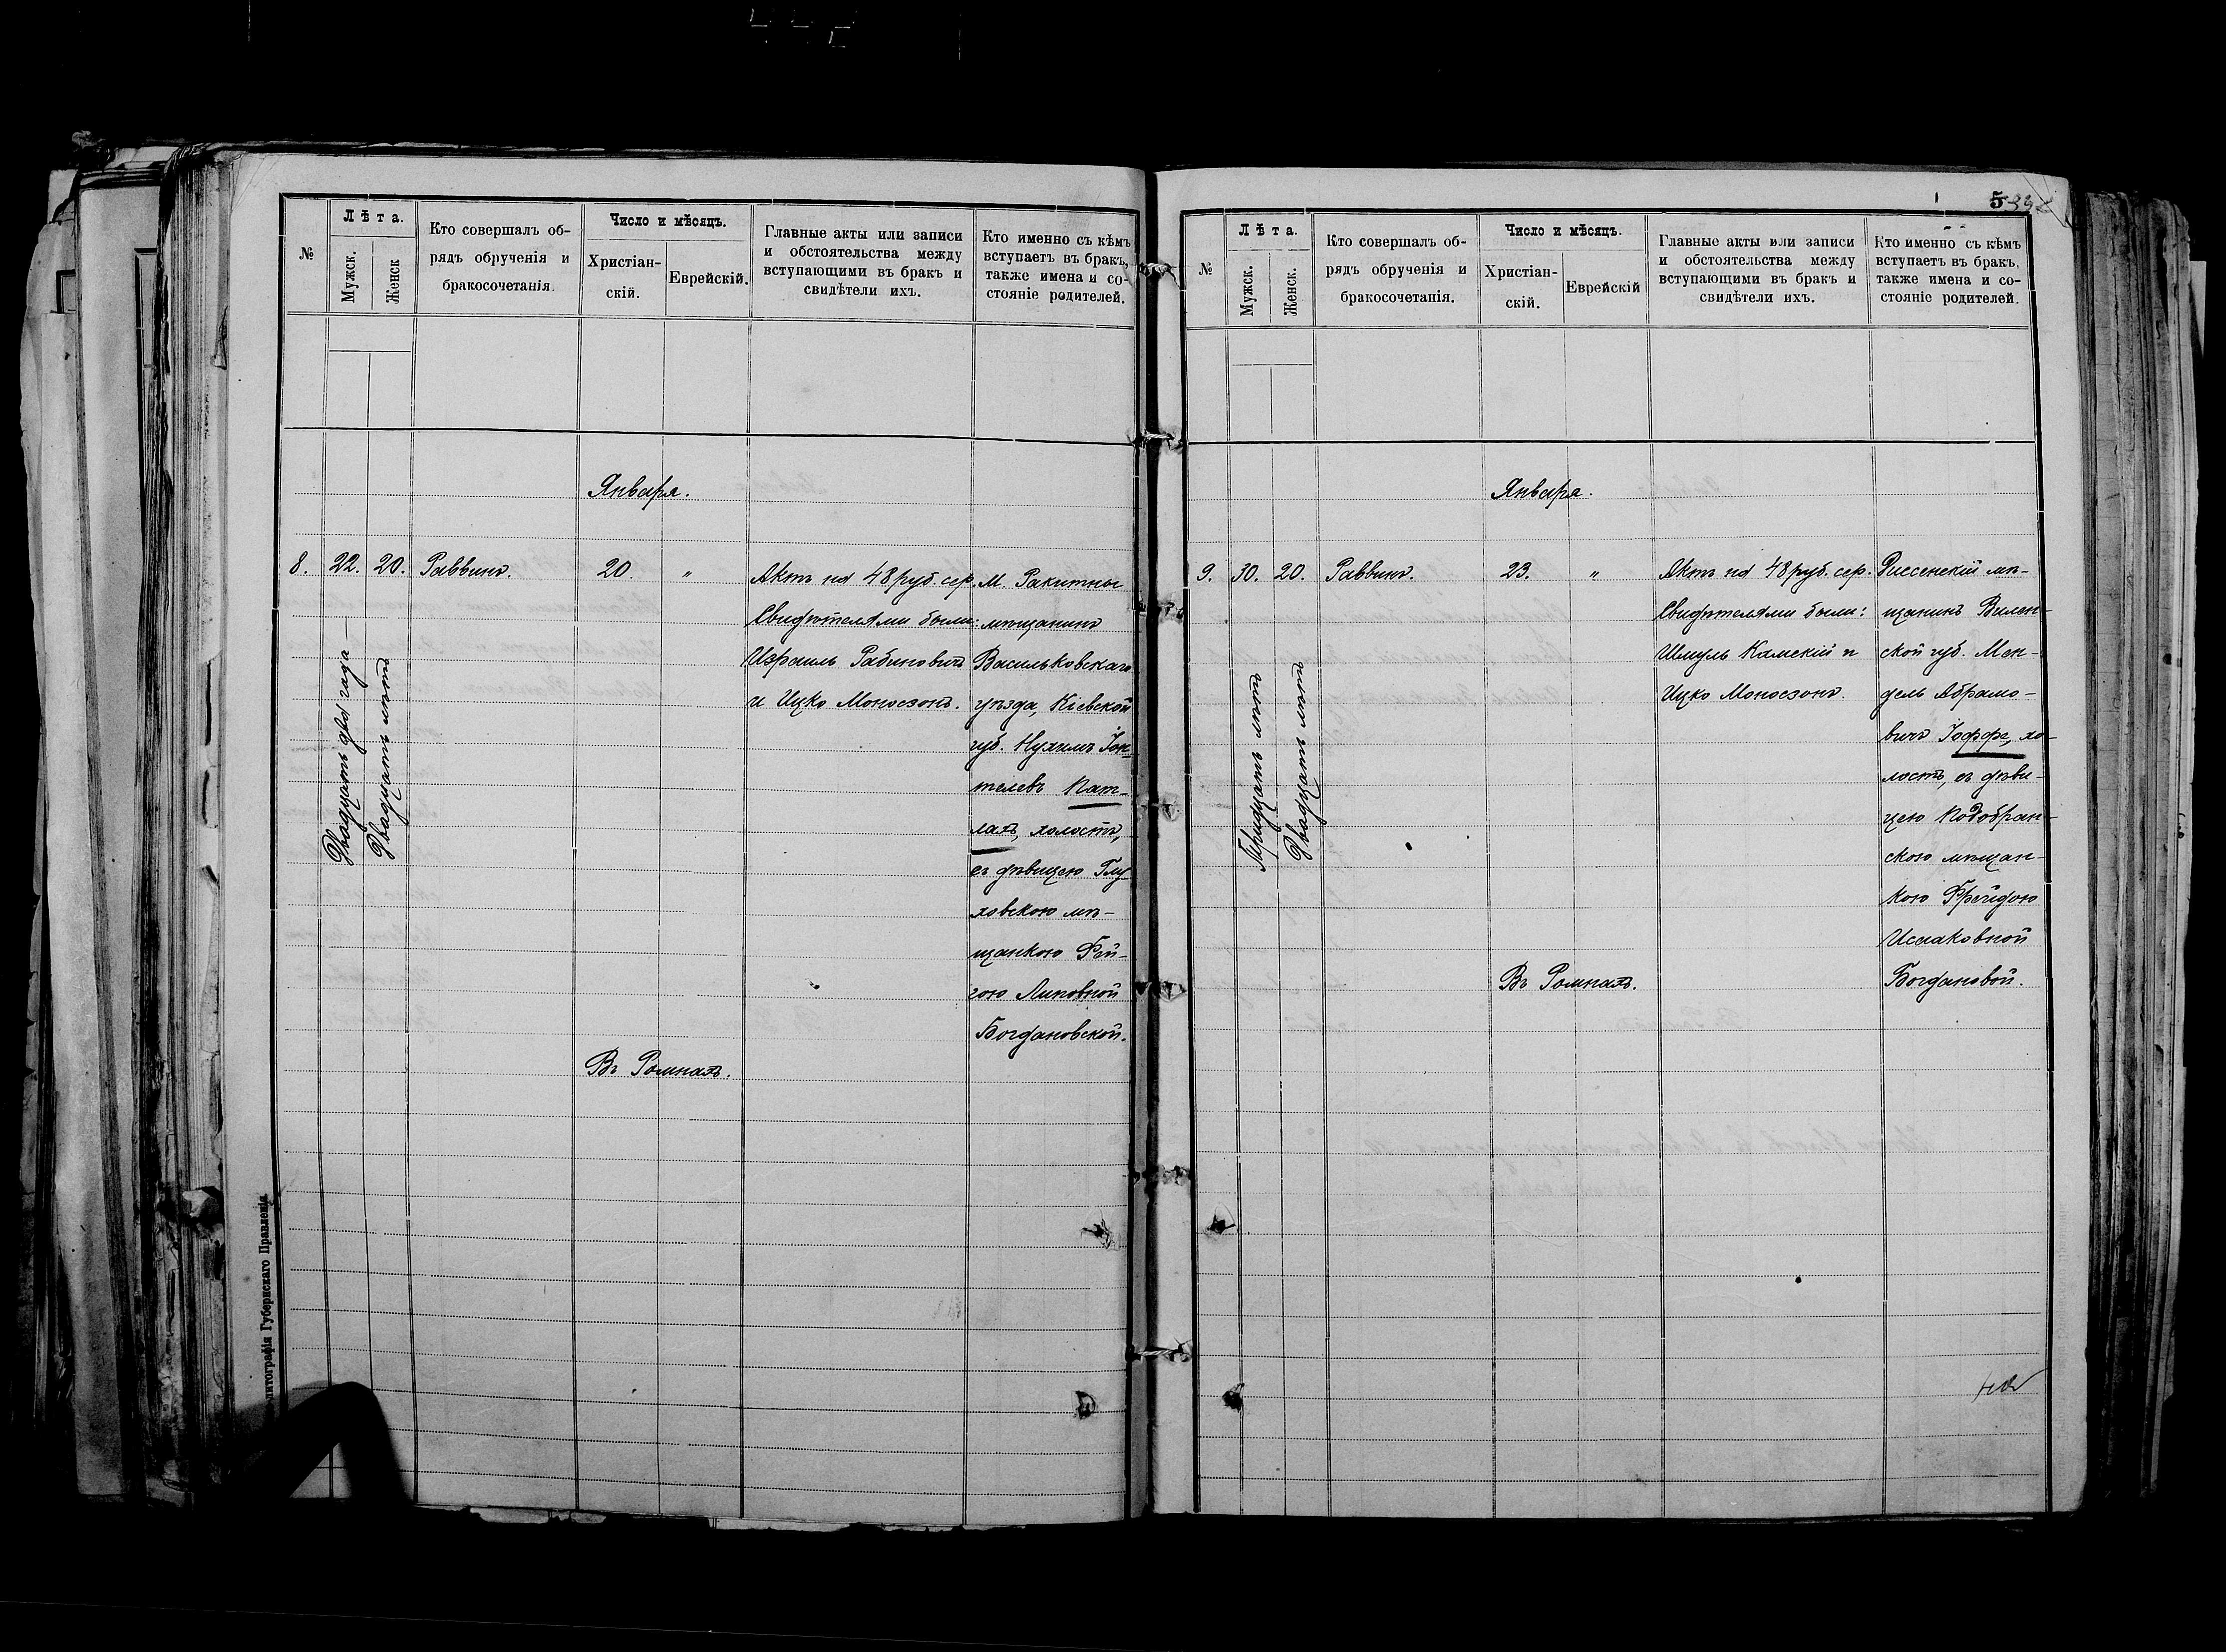 №
Лѣта.
Мужск.
Женск
Кто совершалъ об-
рядъ обрученія и
бракосочетанія.
Число и мѣсяцъ.
Христіан-
скій.
Еврейскій.
Главные акты или записи
и обстоятельства между
вступающими въ бракъ и
свидѣтели ихъ.
Кто именно съ кѣмъ
вступаетъ въ бракъ,
также имена и со-
стояніе родителей.
Января.
8.
22.
20.
Двадцать два года
Двадцать лѣтъ
Раввинъ.
20.
"
Актъ на 48 руб сер.
Свидѣтелями были:
Израиль Рабиновичъ
и Ицко Моносзонъ.
М. Ракитны
мѣщанинъ
Васильковскаго
уѣзда, Кіевской
губ. Нухимъ Іон-
телевъ Кат-
лахъ, холостъ,
съ дѣвицею Глу
ховскою мѣ-
щанкою Фей-
гою Липовной
Богдановской.
Въ Ромнахъ.
литографія Губернскаго Правленія
5
№
Лѣта.
Мужск.
Женск.
Кто совершалъ об-
рядъ обрученія и
бракосочетанія.
Число и мѣсяцъ.
Христіан-
скій.
Еврейскій
Главные акты или записи
и обстоятельства между
вступающими въ бракъ и
свидѣтели ихъ.
Кто именно съ кѣмъ
вступаетъ въ бракъ,
также имена и со-
стояніе родителей.
Января.
9.
30.
20.
Тридцать лѣтъ
Двадцать лѣтъ
Раввинъ.
23.
"
Актъ на 48 руб. сер.
Свидѣтелями были:
Шмуль Камскій и
Ицко Моносзонъ.
Диссенскій мѣ-
щанинъ Вилен-
ской губ. Мен-
дель Абрамо-
вичъ Іоффе, хо-
лостъ, съ дѣви-
цею Кодобран-
скою мѣщан-
кою Фрейдою
Исааковной
Богдановой.
Въ Ромнахъ.